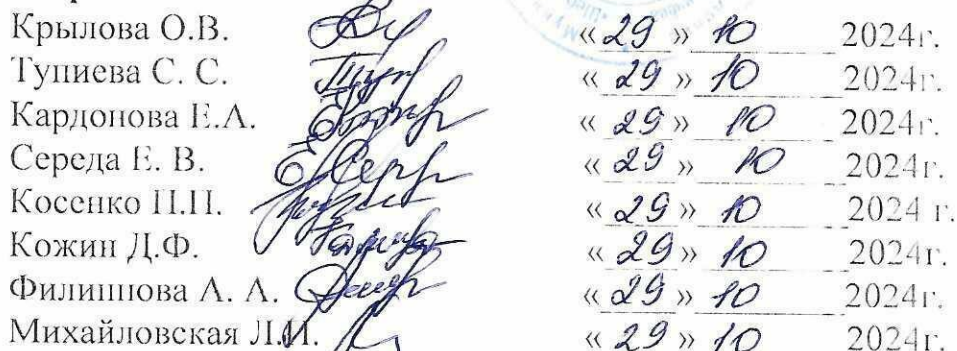 Крылова О.В. «29» 10 2024г.
Тупиева С. С. «29» 10 2024г.
Кардонова Е.А. «29» 10 2024г.
Середа Е. В. «29» 10 2024г.
Косенко П.П. «29» 10 2024 г.
Кожин Д.Ф. «29» 10 2024г.
Филиппова А. А. «29» 10 2024г.
Михайловская Л.И. «29» 10 2024г.